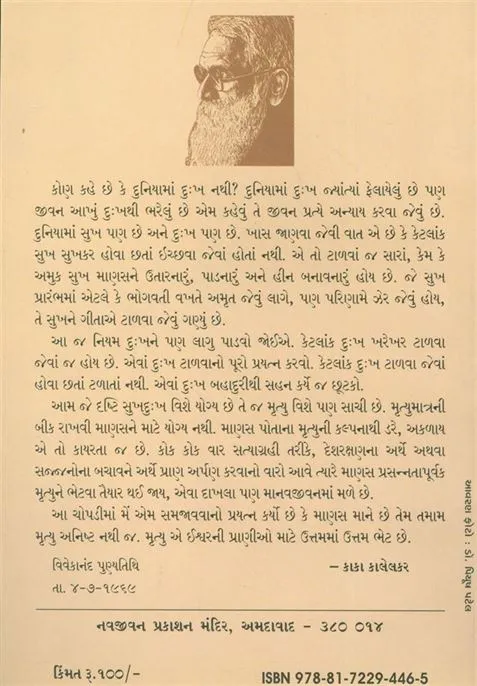 કોણ કહે છે કે દુનિયામાં દુઃખ નથી? દુનિયામાં દુઃખ જ્યાંત્યાં ફેલાયેલું છે પણ
જીવન આખું દુઃખથી ભરેલું છે એમ કહેવું તે જીવન પ્રત્યે અન્યાય કરવા જેવું છે.
દુનિયામાં સુખ પણ છે અને દુઃખ પણ છે. ખાસ જાણવા જેવી વાત એ છે કે કેટલાંક
સુખ સુખકર હોવા છતાં ઇચ્છવા જેવાં હોતાં નથી. એ તો ટાળવાં જ સારાં, કેમ કે
અમુક સુખ માણસને ઉતારનારું, પાડનારું અને હીન બનાવનારું હોય છે. જે સુખ
પ્રારંભમાં એટલે કે ભોગવતી વખતે અમૃત જેવું લાગે, પણ પરિણામે ઝેર જેવું હોય,
તે સુખને ગીતાએ ટાળવા જેવું ગણ્યું છે.
આ જ નિયમ દુઃખને પણ લાગુ પાડવો જોઈએ. કેટલાંક દુઃખ ખરેખર ટાળવા
જેવાં જ હોય છે. એવાં દુઃખ ટાળવાનો પૂરો પ્રયત્ન કરવો. કેટલાંક દુઃખ ટાળવા જેવાં
હોવા છતાં ટળાતાં નથી. એવાં દુઃખ બહાદુરીથી સહન કર્યે જ છૂટકો.
આમ જે દૃષ્ટિ સુખદુઃખ વિશે યોગ્ય છે તે જ મૃત્યુ વિશે પણ સાચી છે. મૃત્યુમાત્રની
બીક રાખવી માણસને માટે યોગ્ય નથી. માણસ પોતાના મૃત્યુની કલ્પનાથી ડરે, અકળાય
એ તો કાયરતા જ છે. કોક કોક વાર સત્યાગ્રહી તરીકે, દેશરક્ષણના અર્થે અથવા
સજ્જનોના બચાવને અર્થે પ્રાણ અર્પણ કરવાનો વારો આવે ત્યારે માણસ પ્રસન્નતાપૂર્વક
મૃત્યુને ભેટવા તૈયાર થઈ જાય, એવા દાખલા પણ માનવજીવનમાં મળે છે.
આ ચોપડીમાં મેં એમ સમજાવવાનો પ્રયત્ન કર્યો છે કે માણસ માને છે તેમ તમામ
મૃત્યુ અનિષ્ટ નથી જ. મૃત્યુ એ ઈશ્વરની પ્રાણીઓ માટે ઉત્તમમાં ઉત્તમ ભેટ છે.
વિવેકાનંદ પુણ્યતિથિ – કાકા કાલેલકર
તા. ૪-૭-૧૯૬૯
આવરણ ફોટો : ડૉ. પિયુષ પટેલ
નવજીવન પ્રકાશન મંદિર, અમદાવાદ – ૩૮૦ ૦૧૪
કિંમત રૂ.૧૦૦/- ISBN 978-81-7229-446-5